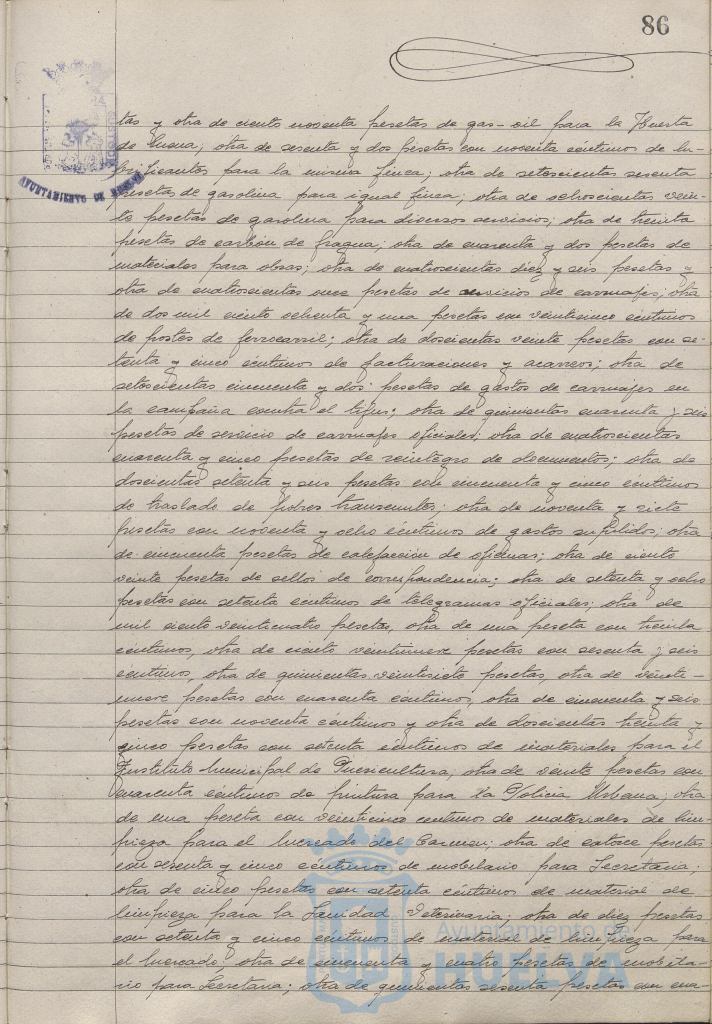 86
AYUNTAMIENTO DE HUELVA
tas y otra de ciento noventa pesetas de gas-oil para la Huerta
de Mena; otra de sesenta y dos pesetas con noventa céntimos de lu-
brificantes para la misma finca; otra de setecientas sesenta
pesetas de gasolina para igual finca; otra de ochocientas vein-
te pesetas de gasolina para diversos servicios; otra de treinta
pesetas de carbón de fragua; otra de cuarenta y dos pesetas de
materiales para obras; otra de cuatrocientas diez y seis pesetas y
otra de cuatrocientas once pesetas de servicios de carruajes; otra
de dos mil ciento ochenta y una pesetas con veinticinco céntimos
de portes de ferrocarril; otra de doscientas veinte pesetas con se-
tenta y cinco céntimos de facturaciones y acarreos; otra de
setecientas cincuenta y dos pesetas de gastos de carruajes en
la campaña contra el tifus; otra de quinientas cuarenta y seis
pesetas de servicio de carruajes oficiales; otra de cuatrocientas
cuarenta y cinco pesetas de reintegro de documentos; otra de
doscientas setenta y seis pesetas con cincuenta y cinco céntimos
de traslado de pobres transeuntes; otra de noventa y siete
pesetas con noventa y ocho céntimos de gastos suplidos; otra
de cincuenta pesetas de calefacción de oficinas; otra de ciento
veinte pesetas de sellos de correspondencia; otra de setenta y ocho
pesetas con setenta céntimos de telegramas oficiales; otra de
mil ciento veinticuatro pesetas, otra de una peseta con treinta
céntimos, otra de ciento veintinueve pesetas con sesenta y seis
céntimos, otra de quinientas veintisiete pesetas, otra de veinti-
nueve pesetas con cuarenta céntimos, otra de cincuenta y seis
pesetas con noventa céntimos y otra de doscientas treinta y
cinco pesetas con setenta céntimos de materiales para el
Instituto Municipal de Puericultura; otra de veinte pesetas con
cuarenta céntimos de pintura para la Policía Urbana; otra
de una peseta con veinticinco céntimos de materiales de lim-
pieza para el Mercado del Carmen; otra de catorce pesetas
con sesenta y cinco céntimos de mobiliario para Secretaria;
otra de cinco pesetas con setenta céntimos de material de
limpieza para la Sanidad Veterinaria; otra de diez pesetas
con setenta y cinco céntimos de material de limpieza para
el Mercado; otra de cincuenta y cuatro pesetas de mobilia-
rio para Secretaria; otra de quinientas sesenta pesetas con cua-
Ayuntamiento de
HUELVA